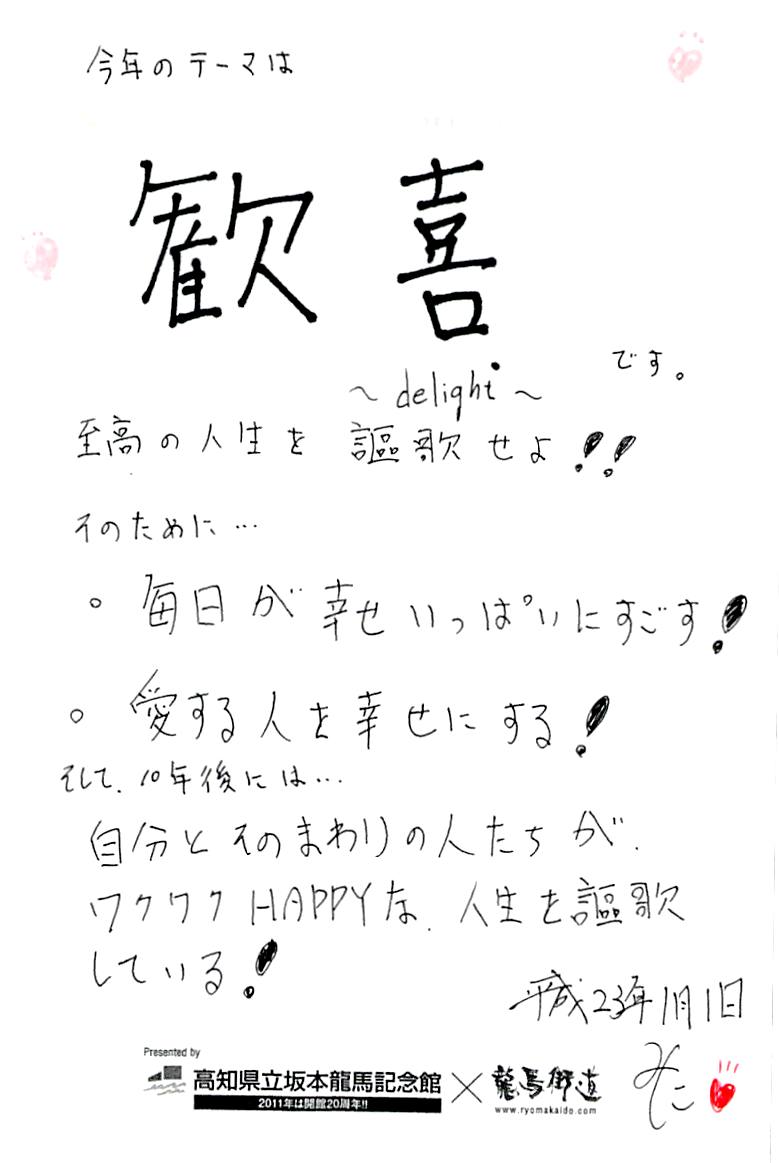 今年のテーマは
歓喜
です。
～delight～
至高の人生を謳歌せよ!!
そのために…
。毎日が幸せいっぱいにすごす!
。愛する人を幸せにする!
そして、10年後には…
自分とそのまわりの人たちが、
ワクワクHAPPYな、人生を謳歌
している!
平成23年1月1日
Presented by
高知県立坂本龍馬記念館×龍馬街道
2011年は開館20周年!!
www.ryomakaido.com